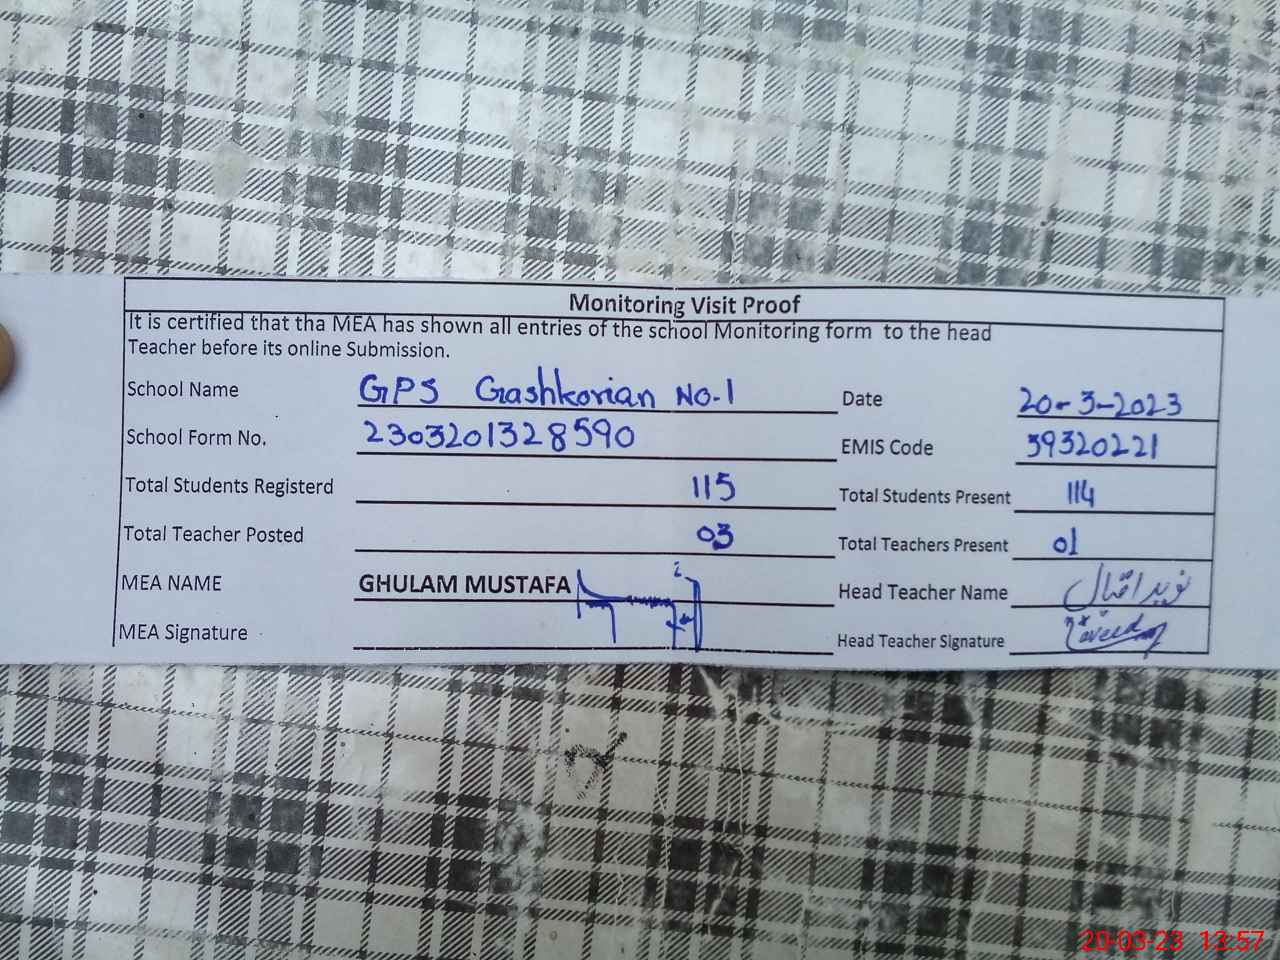 Monitoring Visit Proof
It is certified that tha MEA has shown all entries of the school Monitoring form to the head
Teacher before its online Submission.
School Name GPS Gashkorian No-1 Date 20-3-2023
School Form No. 2303201328590 EMIS Code 39320221
Total Students Registerd 115 Total Students Present 114
Total Teacher Posted 03 Total Teachers Present 01
MEA NAME GHULAM MUSTAFA Head Teacher Name نوید اقبال
MEA Signature Head Teacher Signature Naveed
20-03-23 13:57